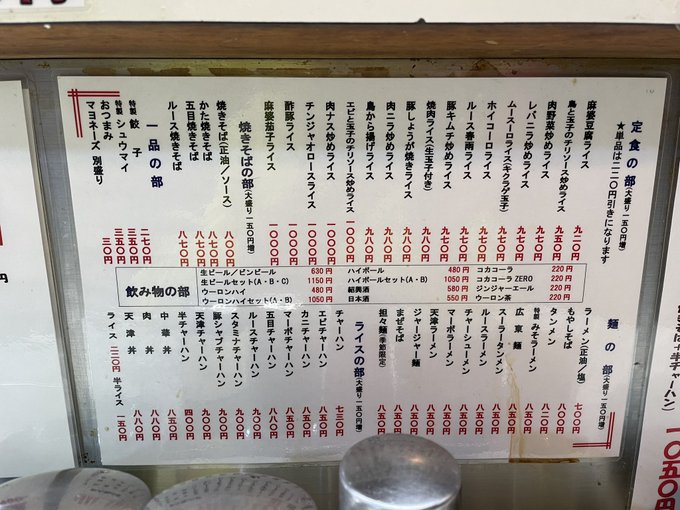 定食の部(大盛り一五〇円増)
★単品は二二〇円引きになります
麻婆豆腐ライス 九二〇円
鳥と玉子のチリソース炒めライス
肉野菜炒めライス
レバニラ炒めライス
ムースーロライス(キクラゲ玉子)
ホイコーロライス
ルース春雨ライス
豚キムチ炒めライス
焼肉ライス(生玉子付き)
豚しょうが焼きライス
肉ニラ炒めライス
鳥から揚げライス
エビと玉子のチリソース炒めライス 一〇〇〇円
肉ナス炒めライス 一〇〇〇円
チンジャオロースライス 一一〇〇円
酢豚ライス 一〇〇〇円
麻婆茄子ライス 一〇〇〇円
焼きそばの部(大盛り一五〇円増)
焼きそば(正油/ソース) 八〇〇円
かた焼きそば 八七〇円
五目焼きそば 八七〇円
ルース焼きそば 八七〇円
一品の部
特製 餃子 二七〇円
特製 シュウマイ 三五〇円
おつまみ 三五〇円
マヨネーズ 別盛り 三〇円
飲み物の部
生ビール/ビンビール 630円
生ビールセット(A・B・C) 1150円
ウーロンハイ 480円
ウーロンハイセット(A・B) 1050円
ハイボール 480円
ハイボールセット(A・B) 1050円
紹興酒 580円
日本酒 550円
コカコーラ 220円
コカコーラ ZERO 220円
ジンジャーエール 220円
ウーロン茶 220円
麺の部(大盛り一五〇円増)
ラーメン(正油/塩) 七〇〇円
もやしそば 八〇〇円
タンメン 八二〇円
特製 みそラーメン 八五〇円
広東麺 八五〇円
スーラータンメン 八五〇円
ルースラーメン 八五〇円
チャーシューメン 八五〇円
マーボラーメン 八五〇円
天津ラーメン 八五〇円
ジャージャー麺 八五〇円
まぜそば 八五〇円
担々麺(季節限定) 八五〇円
ライスの部(大盛り一五〇円増)
チャーハン 七三〇円
エビチャーハン 八五〇円
カニチャーハン 八五〇円
マーボチャーハン 八五〇円
五目チャーハン 八五〇円
ルースチャーハン 九〇〇円
スタミナチャーハン 九〇〇円
豚シャブチャーハン 九〇〇円
天津チャーハン 九〇〇円
半チャーハン 四〇〇円
中華丼
肉丼 八八〇円
天津丼
ライス 二二〇円 半ライス 一五〇円